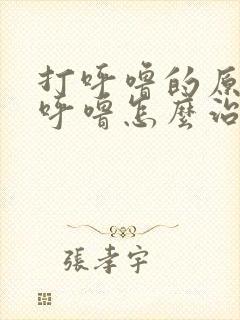 打呼噜的原
呼噜怎麼治
張孝宇